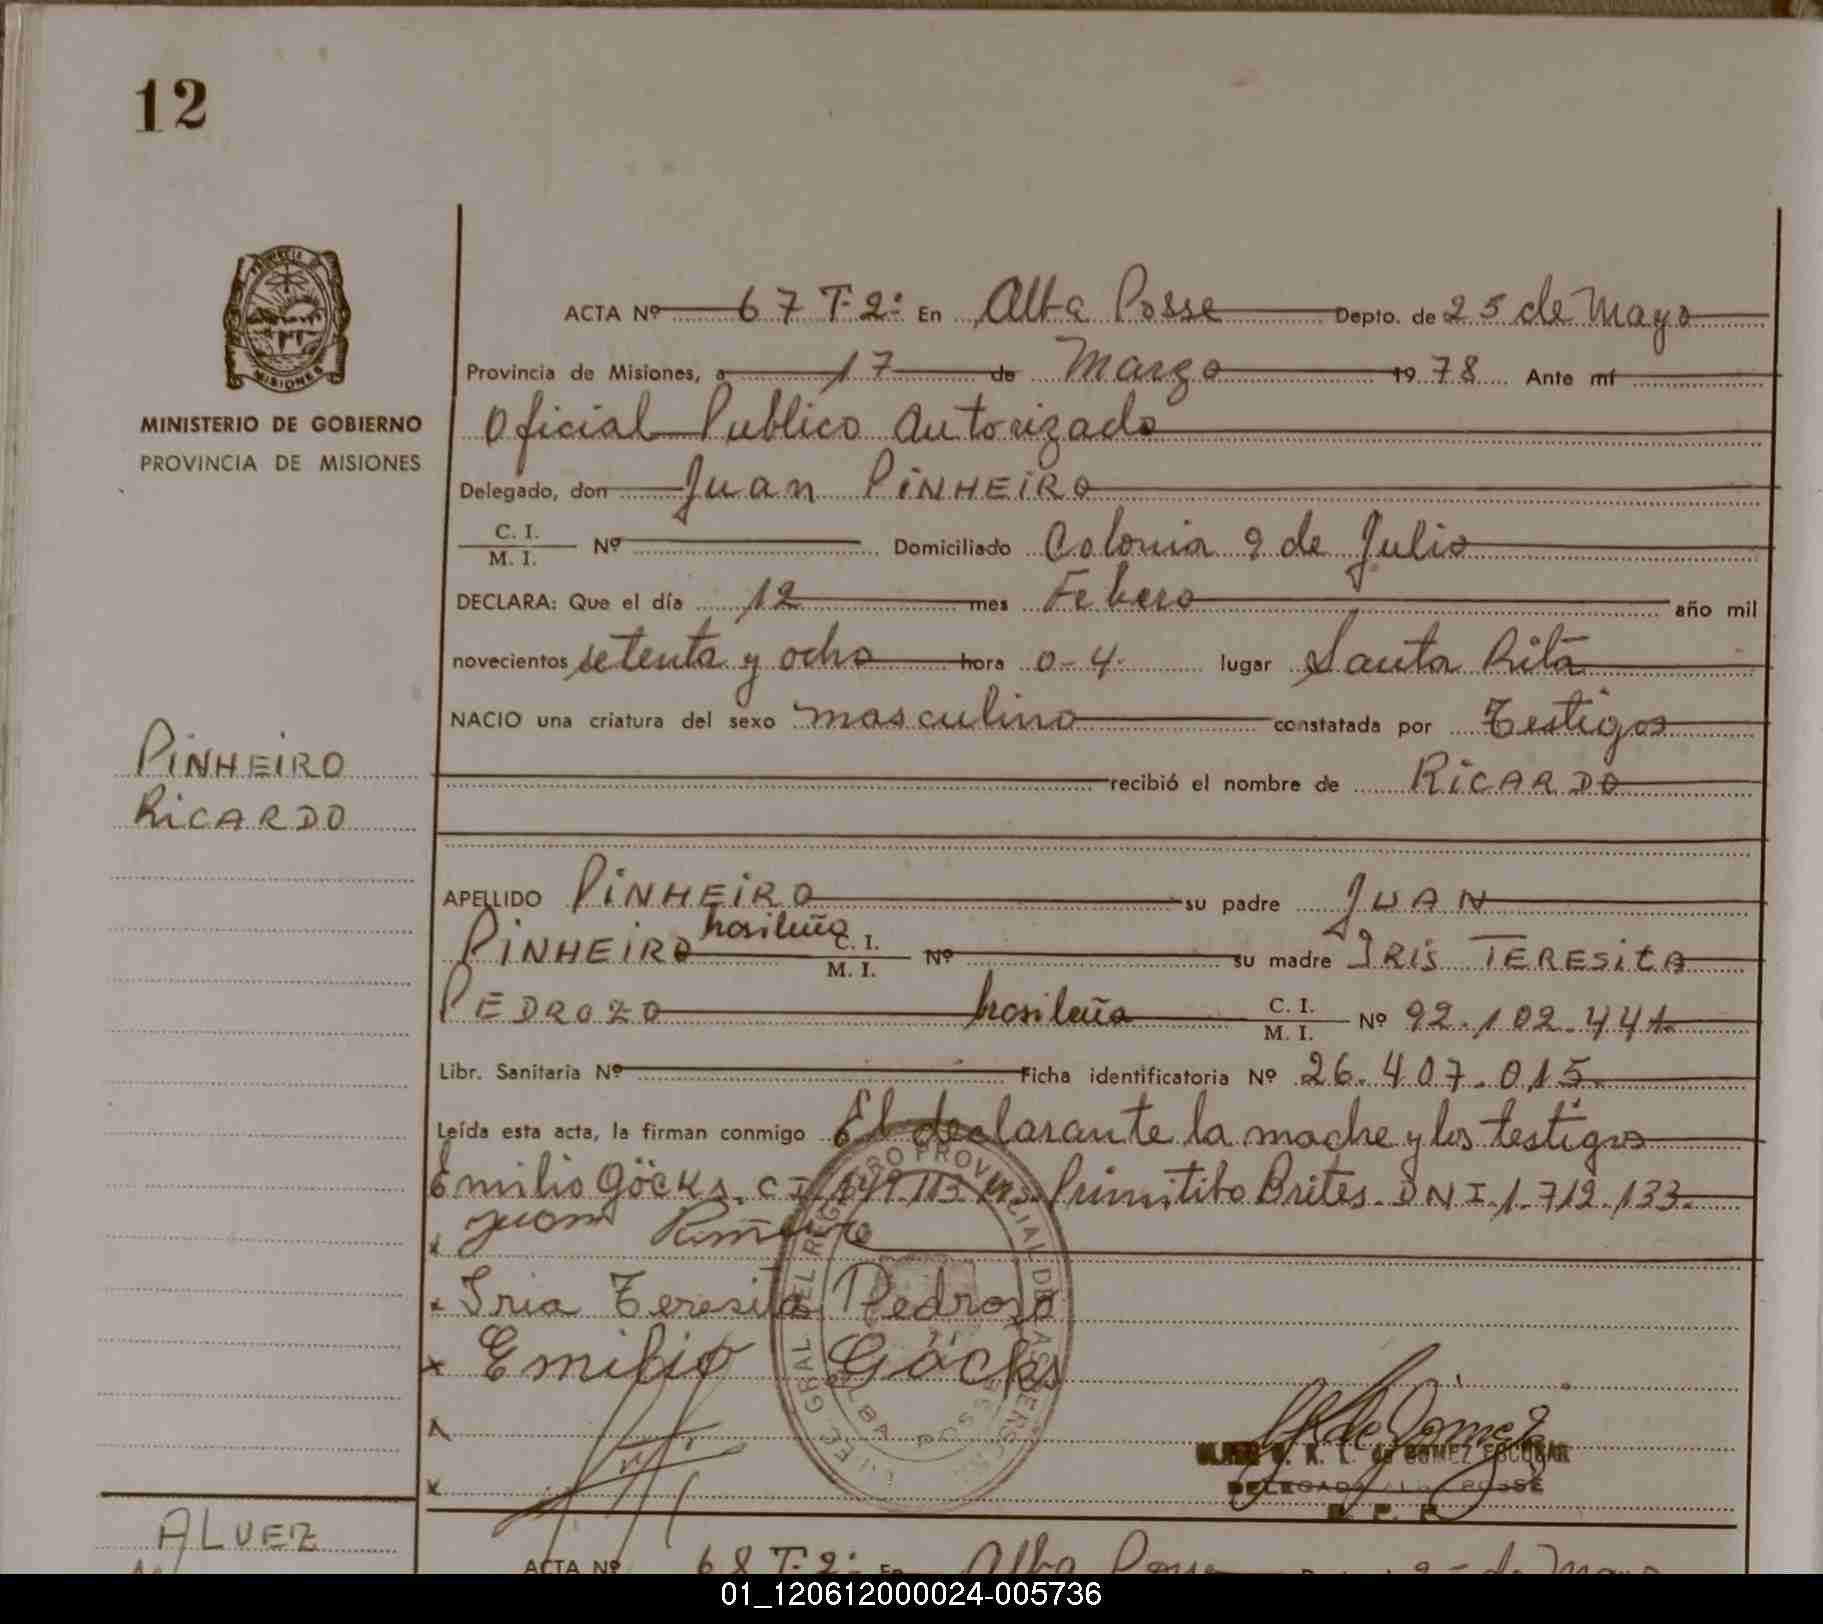 12
PROVINCIA DE
MISIONES
MINISTERIO DE GOBIERNO
PROVINCIA DE MISIONES
ACTA Nº 67 T-2: En Alba Posse Depto. de 25 de Mayo
Provincia de Misiones, a 17 de Marzo 1978 Ante mí
Oficial Publico Autorizado
Delegado, don Juan PiNHEiRO
C. I.
M. I. Nº Domiciliado Colonia 9 de Julio
DECLARA: Que el día 12 mes Febero año mil
novecientos setenta y ocho hora 0-4 lugar Santa Rita
NACIO una criatura del sexo masculino constatada por Testigos
PiNHEiRO
recibió el nombre de RiCARDO
RiCARDO
APELLIDO PiNHEiRO su padre JUAN
PiNHEiRO brasileño C. I.
M. I. Nº su madre IRiS TERESitA
PEDROZO brasileña C. I.
M. I. Nº 92.102.441
Libr. Sanitaria Nº Ficha identificatoria Nº 26.407.015
Leída esta acta, la firman conmigo El declarante la madre y los testigos
Emilio Göcks. C I Primitibo Brites. D N I. 1.712.133.
x Juan
x Iria Teresita Pedroso
x Emilio Göcks
REGISTRO PROVINCIAL DE LAS PERSONAS
ALBA POSSE
de GOMEZ ESCOBAR
DELEGADA ALBA POSSE
R. P. P.
ALVEZ
ACTA Nº 68 T-2: En Alba Posse
01_120612000024-005736